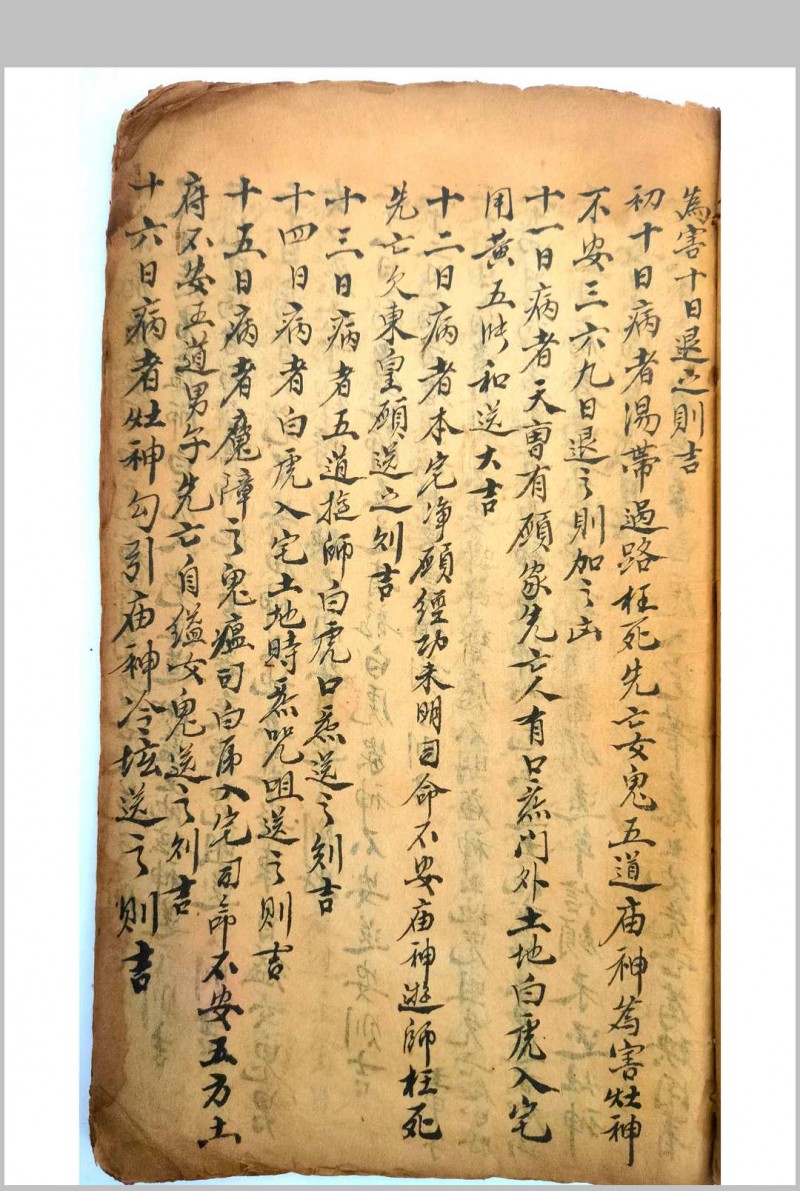 為害十日退之則吉
初十日病者湯帶過路枉死先亡女鬼五道庙神為害灶神
不安三六九日退之則加之凶
十一日病者天曺有願家先亡人有口𢙣门外土地白虎入宅
用黄五时和送大吉
十二日病者本宅净願經功未明司命不安庙神遊師枉死
先亡欠東皇願送之则吉
十三日病者五道遊師白虎口𢙣送之则吉
十四日病者白虎入宅土地時𢙣咒咀送之則吉
十五日病者魔障之鬼瘟司白虎入宅司命不安五方土
府不安五道男子先亡自縊女鬼送之则吉
十六日病者灶神勾引庙神冷坛送之則吉